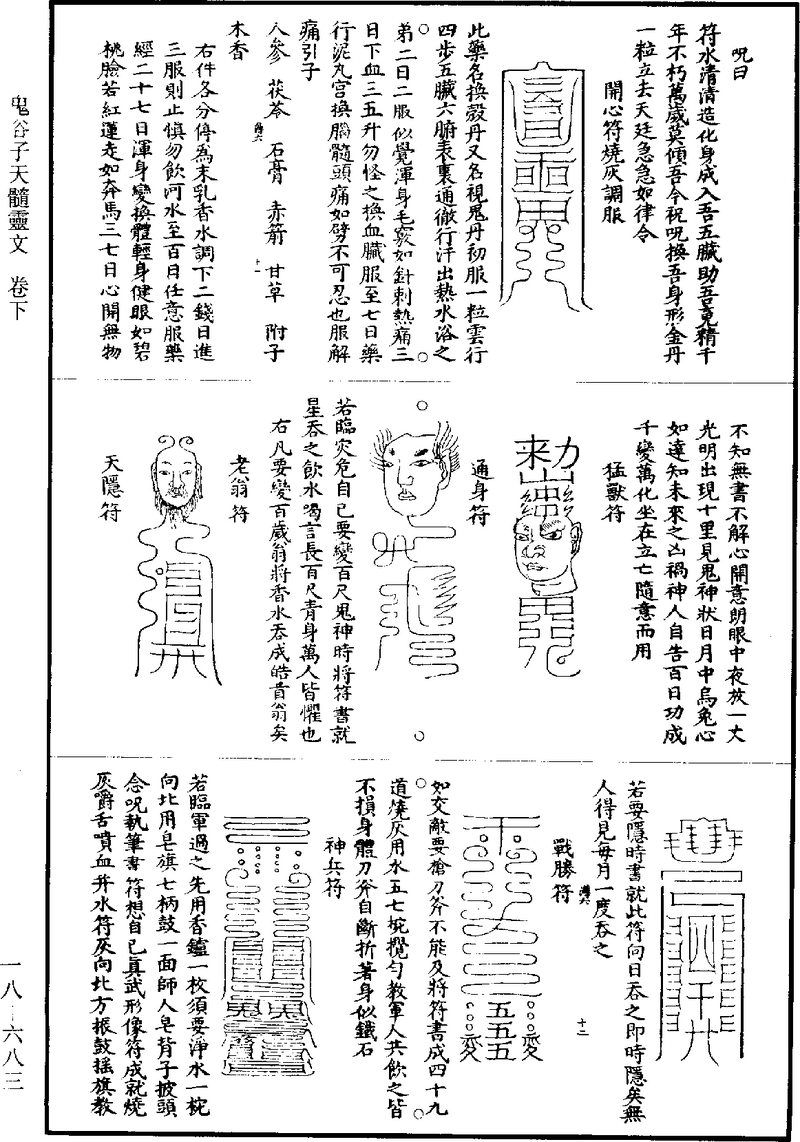 呪曰
符水清清造化身成入吾五臟助吾竟精千
年不朽萬歲莫傾吾今祝呪換吾身形金丹
一粒立去天廷急急如律令
開心符燒灰調服
此藥名換殼丹又名視鬼丹初服一粒雲行
四步五臟六腑表裏通徹行汗出熱水浴之
弟二日二服似覺渾身毛竅如針刺熱痛三
日下血三五升勿怪之換血臟服至七日藥
行泥丸宫換腦髓頭痛如劈不可忍也服解
痛引子
人參 茯苓 石膏 赤箭 甘草 附子
木香
右件各分停為末乳香水調下二錢日進
三服則止慎勿飲河水至百日任意服藥
經二十七日渾身變換體輕身健眼如碧
桃臉若紅蓮走如奔馬三七日心開無物
不知無書不解心開意朗眼中夜放一丈
光明出現十里見鬼神狀日月中烏兔心
如達知未來之凶禍神人自告百日功成
千變萬化坐在立亡隨意而用
猛獸符
通身符
若臨灾危自己要變百尺鬼神時將符書就
星吞之飲水喝言長百尺青身萬人皆懼也
右凡要變百歲翁將香水吞成皓首翁矣
老翁符
天隱符
若要隱時書就此符向日吞之即時隱矣無
人得見每月一度吞之
戰勝符
如交敵要槍刀斧不能及將符書成四十九
道燒灰用水五七椀攪勻教軍人共飲之皆
不損身體刀斧自斷折著身似鐵石
神兵符
若臨軍過之先用香鑪一枚須要淨水一椀
向北用皂旗七柄鼓一面師人皂背子披頭
念呪執筆書符想自己真武形像符成就燒
灰嚼舌噴血并水符灰向北方振鼓搖旗教
鬼谷子天髓靈文 卷下
一八—六八三